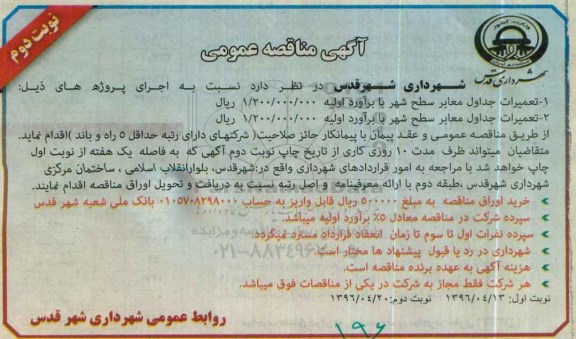 نوبت دوم
آگهی مناقصه عمومی
شهرداری شهرقدس
شهرداری شهرقدس در نظر دارد نسبت به اجرای پروژه های ذیل:
۱-تعمیرات جداول معابر سطح شهر با برآورد اولیه ۱/۲۰۰/۰۰۰/۰۰۰ ریال
۲-تعمیرات جداول معابر سطح شهر با برآورد اولیه ۱/۲۰۰/۰۰۰/۰۰۰ ریال
از طریق مناقصه عمومی و عقد پیمان با پیمانکار حائز صلاحیت( شرکتهای دارای رتبه حداقل ۵ راه و باند )اقدام نماید.
متقاضیان میتواند ظرف مدت ۱۰ روزی کاری از تاریخ چاپ نوبت دوم آگهی که به فاصله یک هفته از نوبت اول
چاپ خواهد شد با مراجعه به امور قراردادهای شهرداری واقع در:شهرقدس، بلوارانقلاب اسلامی ، ساختمان مرکزی
شهرداری شهرقدس ،طبقه دوم با ارائه معرفینامه و اصل رتبه نسبت به دریافت و تحویل اوراق مناقصه اقدام نمایند.
خرید اوراق مناقصه به مبلغ ۵۰۰۰۰۰ ریال قابل واریز به حساب ۰۱۰۵۷۰۸۲۹۸۰۰۰ بانک ملی شعبه شهر قدس
سپرده شرکت در مناقصه معادل ۵٪ برآورد اولیه میباشد.
سپرده نفرات اول تا سوم تا زمان انعقاد قرارداد مسترد نمیگردد.
شهرداری در رد یا قبول پیشنهاد ها مختار است.
هزینه آگهی به عهده برنده مناقصه است.
هر شرکت فقط مجاز به شرکت در یکی از مناقصات فوق میباشد.
نوبت اول: ۱۳۹۶/۰۴/۱۳ نوبت دوم:۱۳۹۶/۰۴/۲۰
روابط عمومی شهرداری شهر قدس
۱۹۶